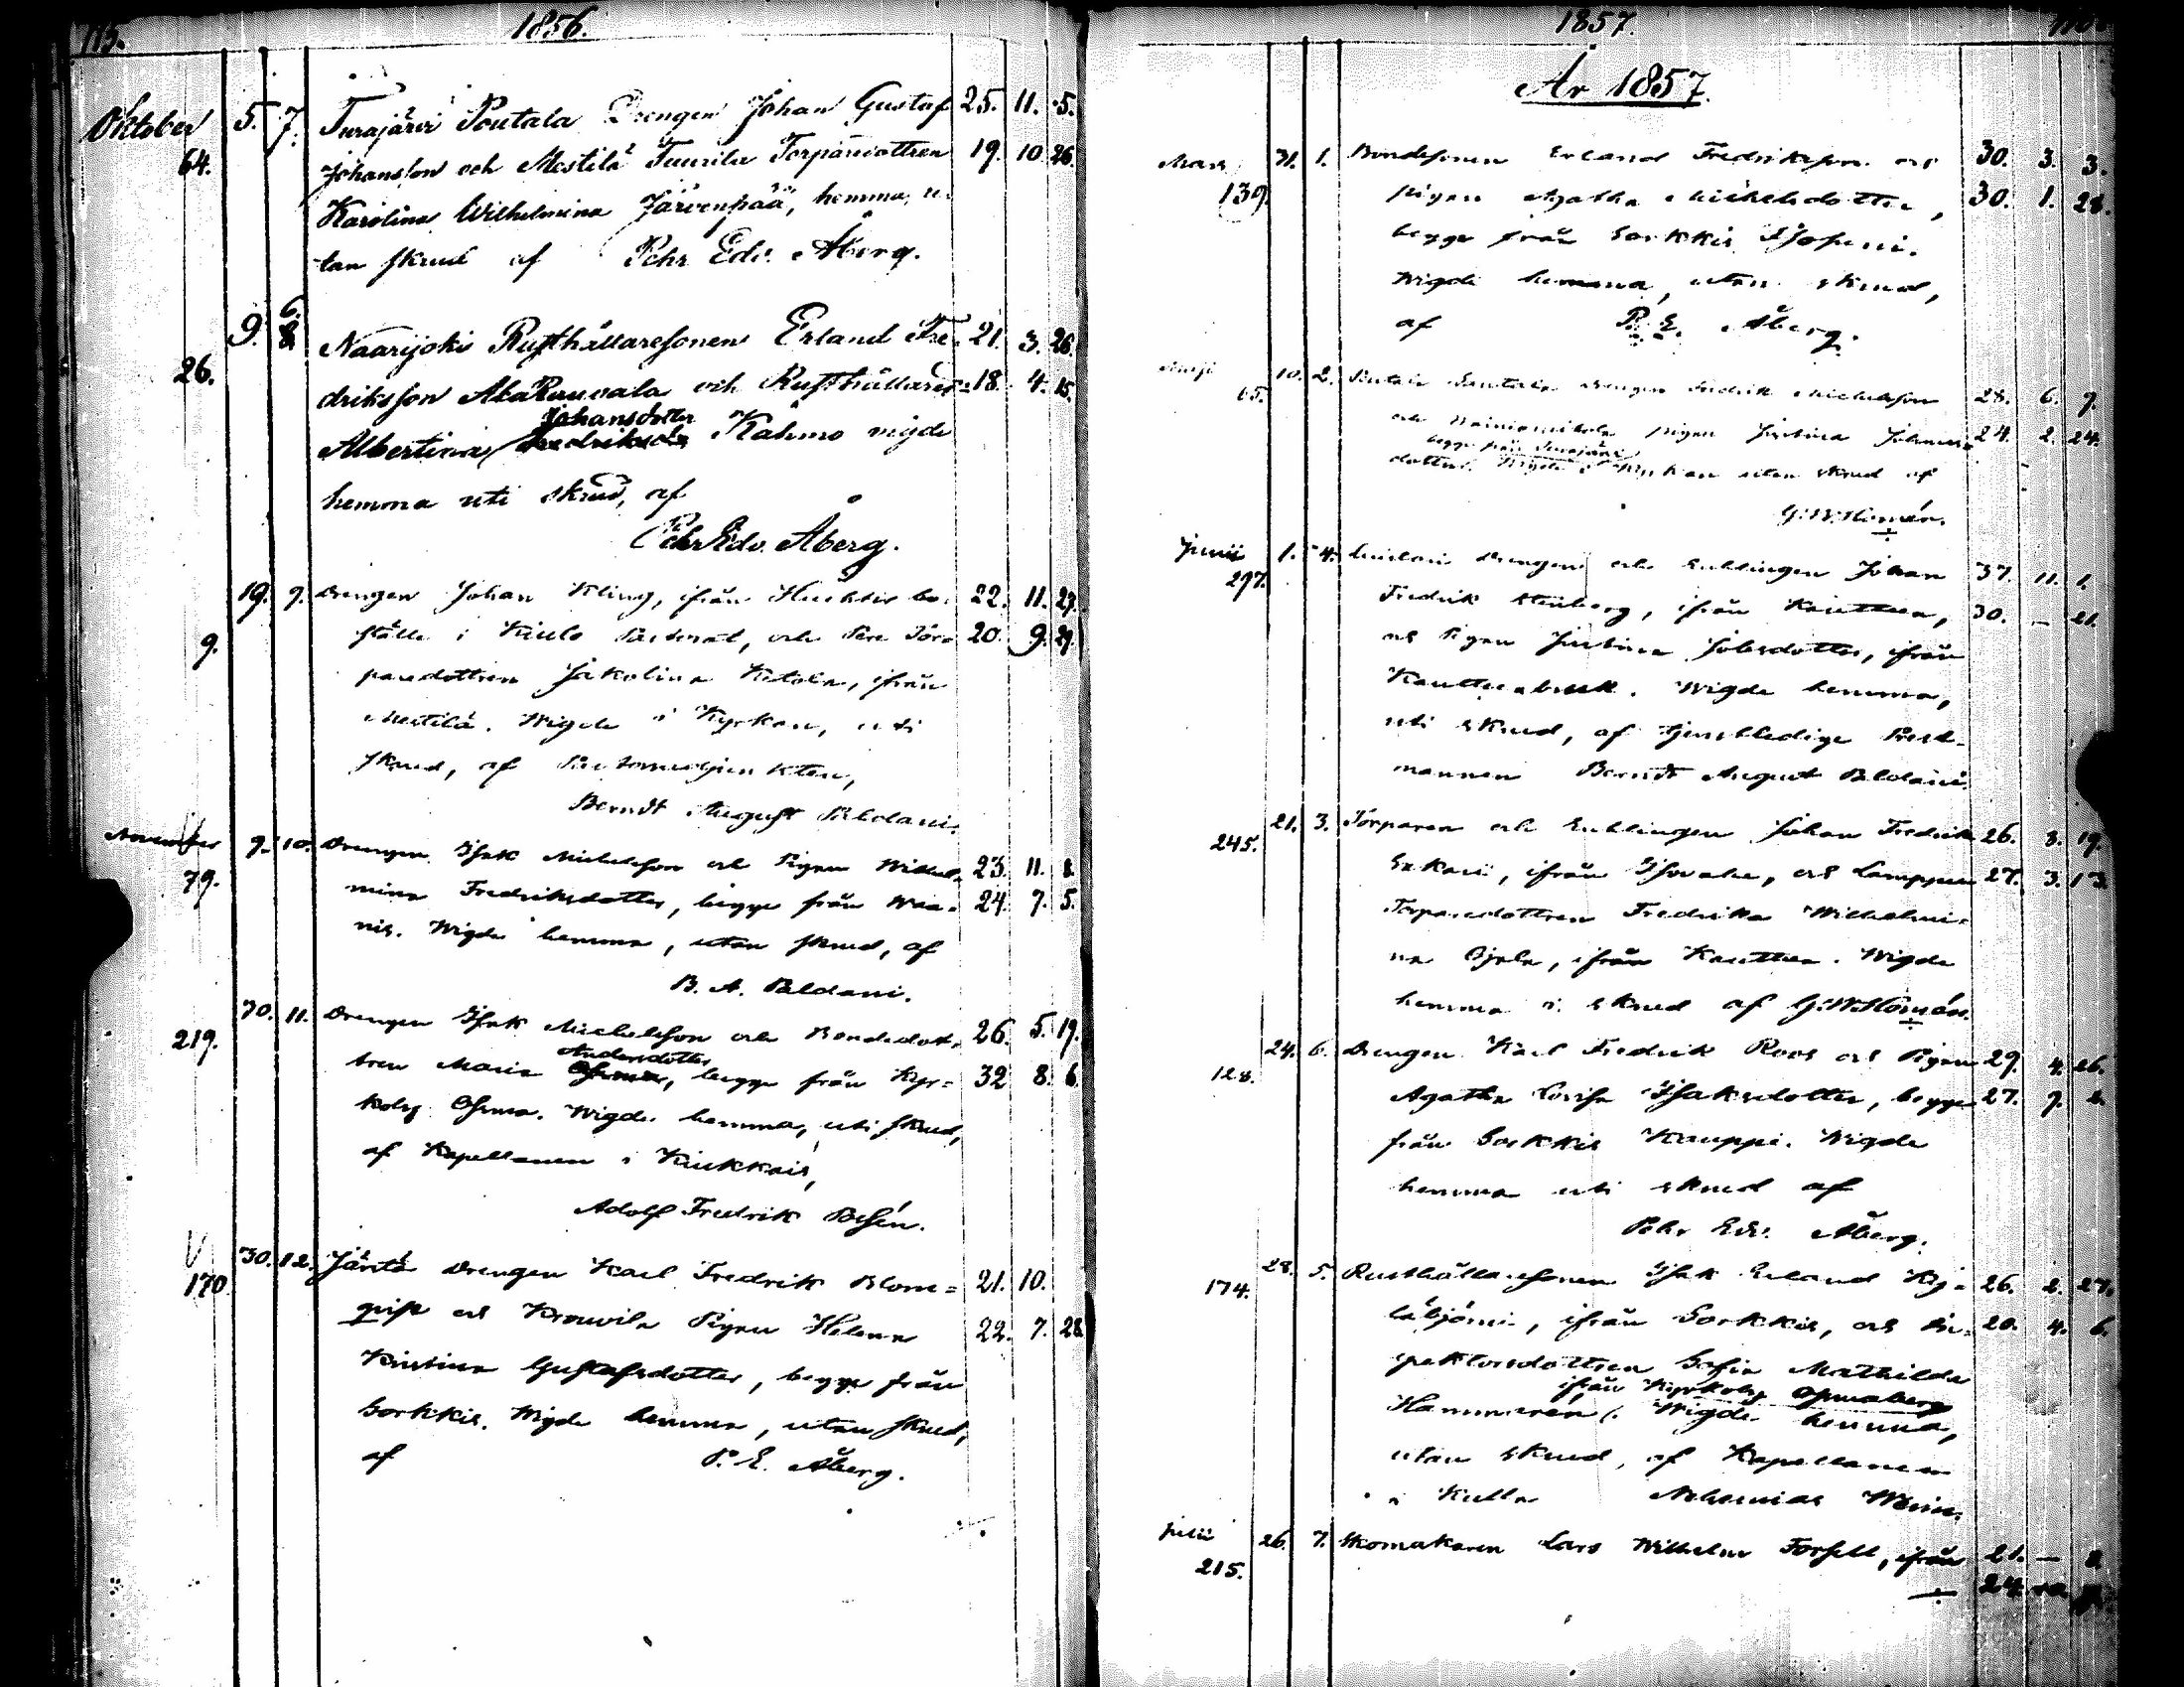 115.
1856.
Oktober 5. 7. Turajärvi Poutala Drengen Johan Gustaf 25. 11. 5.
64. Johansson och Mestilä Tuurila Torparedottren 19. 10. 26.
Karolina Wilhelmina Järvenpää, hemma, u-
tan skrud af Pehr Edv. Åberg.
6.
9. Naarijoki Rusthållaresonen Erland Fre- 21. 3. 26.
26. driksson och Rusthållared 18. 4. 15.
Johansdotter
Albertina Kähmo vigde
hemma uti skrud, af
Pehr Edv. Åberg.
19. 9. Drengen Johan Kling, ifrån bo- 22. 11. 27.
9. ställe i Kiulo Pastorat, och Tor- 20. 9. 29.
paredottren Jakolina Ketola, ifrån
Mestilä. Wigde i Kyrkan, uti
skrud, af Pastorsadjunkten,
Berndt August Paldani.
November 9. 10. Drengen Isak Michelsson och Pigan Wilhel- 23. 11. 8.
79. mina Fredriksdotter, begge från Waa- 24. 7. 5.
nis. Wigde hemma, utan skrud, af
B. A. Paldani.
30. 11. Drengen Isak Michelsson och Bondedot- 26. 5. 19.
219. Andersdotter
tren Maria begge från Kyr- 32 8. 6.
koby Ohrna. Wigde hemma, uti skrud,
af Kapellanen i Kiukkais,
Adolf Fredrik
30. 12. Jäntä Drengen Karl Fredrik Blom- 21. 10.
170. qvist och Krouvila Pigan Helena 22. 7. 28.
Kristina Gustafsdotter, begge från
Sorkkis. Wigde hemma, utan skrud,
af P. E. Åberg.
1857.
År 1857.
Mars 31. 1. Bondesonen Erland Fredriksson och 30. 3. 3.
139. pigan Agatha Michelsdotter, 30. 1. 28.
begge från Sorkkis
Wigde hemma, utan skrud,
af P. E. Åberg.
Maji 10. 2. Drengen Fredrik Michelsson 28. 6. 7.
65. och pigan Justina Johans- 24. 2. 24.
begge från Turajärvi
dotter. Wigde i Kyrkan utan skrud af
G. W. Homén.
Junii 1. 4. Drengen och Enklingen Johan 37. 11. 1.
297. Fredrik Stenberg, ifrån Kauttua, 30. — 21.
och Pigan Justina Johsdotter, ifrån
Kauttua bruk. Wigde hemma,
uti skrud, af tjenstledige Prest-
mannen Berndt August Paldani.
21. 3. Torparen och Enklingen Johan Fredrik 26. 3. 19.
245. ifrån och 27. 3. 13.
Torparedottren Fredrika Wilhelmi-
na Ojala, ifrån Kauttua. Wigde
hemma i skrud af G. W. Homén.
24. 6. Drengen Karl Fredrik Roos och Pigan 29. 4. 26.
128. Agatha Lovisa Isaksdotter, begge 27. 7. 2.
från Sorkkis Kauppi. Wigde
hemma uti skrud af
Pehr Edv. Åberg.
28. 5. Rusthållaresonen Isak Erland Ky- 26. 2. 27.
174. läkjöni, ifrån Sorkkis, och In- 20. 4. 6.
spektorsdottren Sofia Mathilda
ifrån Kyrkoby
Hammarén. Wigde hemma,
utan skrud, af Kapellanen
i Kulla Nehemias
Julii 26. 7. Skomakaren Lars Wilhelm Forsell, ifrån 21. — 8.
215. 24.